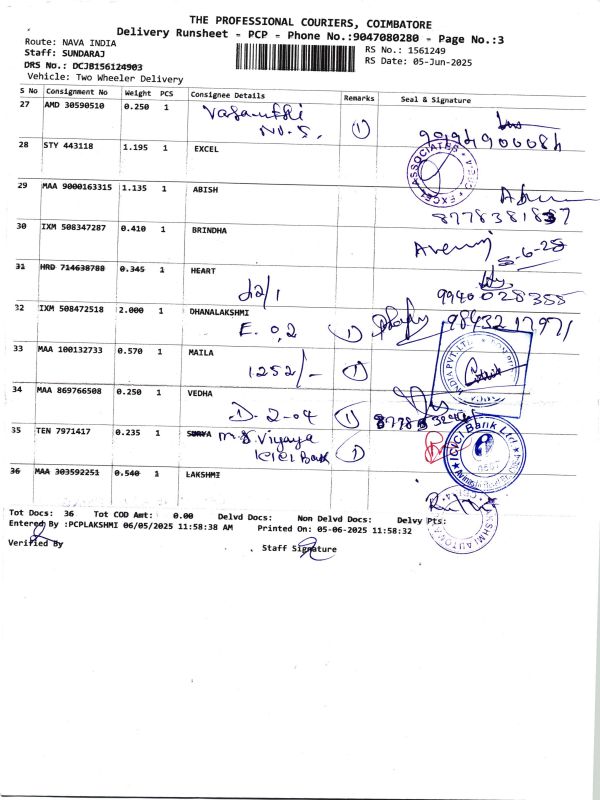 THE PROFESSIONAL COURIERS, COIMBATORE
Delivery Runsheet - PCP - Phone No.:9047080280 - Page No.:3
Route: NAVA INDIA
RS No.: 1561249
Staff: SUNDARAJ
RS Date: 05-Jun-2025
DRS No.: DCJB156124903
Vehicle: Two Wheeler Delivery
S No Consignment No Weight PCS Consignee Details Remarks Seal & Signature
27 AMD 30590510 0.250 1 Vasanthi
No. 5. 1 9994900084
28 STY 443118 1.195 1 EXCEL
ASSOCIATES EXCEL
29 MAA 9000163315 1.135 1 ABISH
8778381837
30 IXM 508347287 0.410 1 BRINDHA
5-6-25
31 HRD 714638788 0.345 1 HEART
d2/1 9940028355
32 IXM 508472518 2.000 1 DHANALAKSHMI
E. 0,2 1 9843217971
33 MAA 100132733 0.570 1 MAILA
1252/- 1
INDIA PVT. LTD.
34 MAA 869766508 0.250 1 VEDHA
D-2-04 1
35 TEN 7971417 0.235 1 SURYA M.S. Vijaya
ICICI Bank 1
ICICI Bank Ltd
36 MAA 303592251 0.540 1 LAKSHMI
LAKSHMI AUTO
Tot Docs: 36 Tot COD Amt: 0.00 Delvd Docs: Non Delvd Docs: Delvy Pts:
Entered By :PCPLAKSHMI 06/05/2025 11:58:38 AM Printed On: 05-06-2025 11:58:32
Verified By
Staff Signature